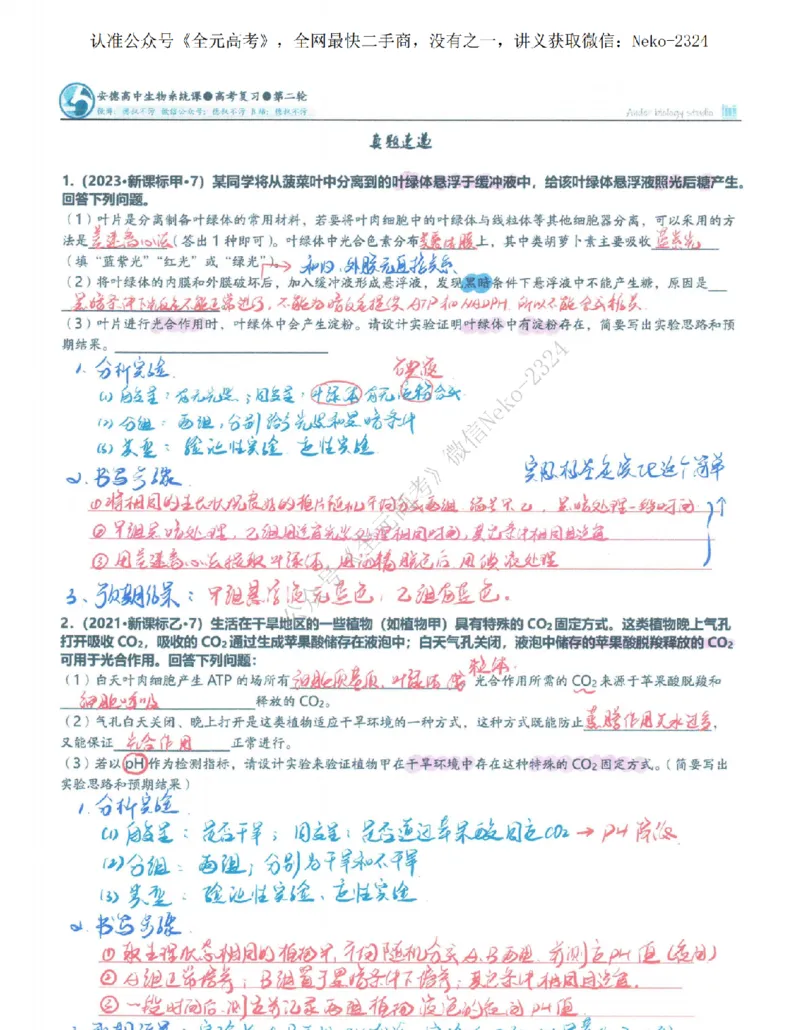 认准公众号《全元高考》，全网最快二手商，没有之一，讲义获取微信：Neko-2324
安德高中生物系统课●高考复习●第二轮
真题速递
1.（2023•新课标甲•7）某同学将从菠菜叶中分离到的叶绿体悬浮于缓冲液中，给该叶绿体悬浮液照光后糖产生。
回答下列问题。
（1）叶片是分离制备叶绿体的常用材料，若要将叶肉细胞中的叶绿体与线粒体等其他细胞器分离，可以采用的方
法是差速离心法（答出 1 种即可）。叶绿体中光合色素分布类囊体膜上，其中类胡萝卜素主要吸收蓝紫光
（填“蓝紫光”“红光”或“绿光”）。→和内、外膜无直接关系
（2）将叶绿体的内膜和外膜破坏后，加入缓冲液形成悬浮液，发现黑暗条件下悬浮液中不能产生糖，原因是
黑暗条件下光反应不能正常进行，不能为暗反应提供ATP和NADPH，所以不能合成糖类.
（3）叶片进行光合作用时，叶绿体中会产生淀粉。请设计实验证明叶绿体中有淀粉存在，简要写出实验思路和预
期结果。
1. 分析实验 碘液
(1) 自变量：有无光照；因变量：叶绿体有无淀粉合成
(2) 分组：两组，分别给予光照和黑暗条件
(3) 类型：验证性实验 定性实验
2. 书写步骤
①将相同的生长状况良好的植片随机平均分成两组 编号甲、乙，黑暗处理一段时间
②甲组黑暗处理，乙组用适宜光照处理相同时间，其它条件相同且适宜
③用差速离心法提取叶绿体，用酒精脱色后用碘液处理
3、预期结果：甲组悬浮液无蓝色，乙组有蓝色。
公众号《全元高考》微信Neko-2324
2.（2021•新课标乙•7）生活在干旱地区的一些植物（如植物甲）具有特殊的 CO₂ 固定方式。这类植物晚上气孔
打开吸收 CO₂，吸收的 CO₂ 通过生成苹果酸储存在液泡中；白天气孔关闭，液泡中储存的苹果酸脱羧释放的 CO₂
可用于光合作用。回答下列问题：
（1）白天叶肉细胞产生 ATP 的场所有细胞质基质、叶绿体 线粒体. 光合作用所需的 CO₂ 来源于苹果酸脱羧和
细胞呼吸释放的 CO₂。
（2）气孔白天关闭、晚上打开是这类植物适应干旱环境的一种方式，这种方式既能防止蒸腾作用失水过多，
又能保证光合作用正常进行。
（3）若以 pH 作为检测指标，请设计实验来验证植物甲在干旱环境中存在这种特殊的 CO₂ 固定方式。（简要写出
实验思路和预期结果）
1. 分析实验
(1) 自变量：是否干旱；因变量：是否通过苹果酸固定CO₂ → PH 降低
(2) 分组：两组，分别为干旱和不干旱
(3) 类型：验证性实验、定性实验
2. 书写步骤
①取生理状态相同的植物甲，平均随机分成A.B两组，并测定PH值（夜间）
②A组正常培养；B组置于旱暗条件下培养；其它条件相同且适宜.
③一段时间后，测定并记录两组植物液泡的夜间PH值.